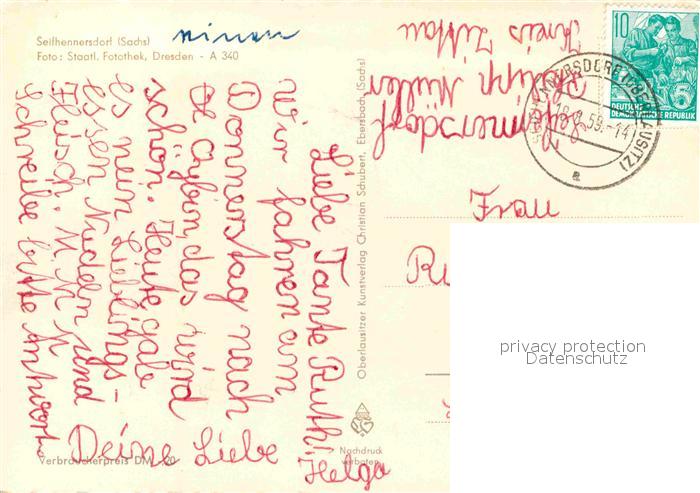 Seifhennersdorf (Sachs)
Foto: Staatl. Fotothek, Dresden - A 340
Liebe Tante Ruth!
Wir fahren am
Donnerstag nach
das wird
schön. Heute gab
es mein Lieblings-
essen Nudeln und
Fleisch.
Schreibe bitte Antwort.
Deine Liebe
Helga
Verbraucherpreis DM -,20
Oberlausitzer Kunstverlag Christian Schubert, Ebersbach (Sachs)
Nachdruck
verboten
Müller
Kreis Zittau
10
5
DEUTSCHE
DEMOKRATISCHE REPUBLIK
Frau
privacy protection
Datenschutz